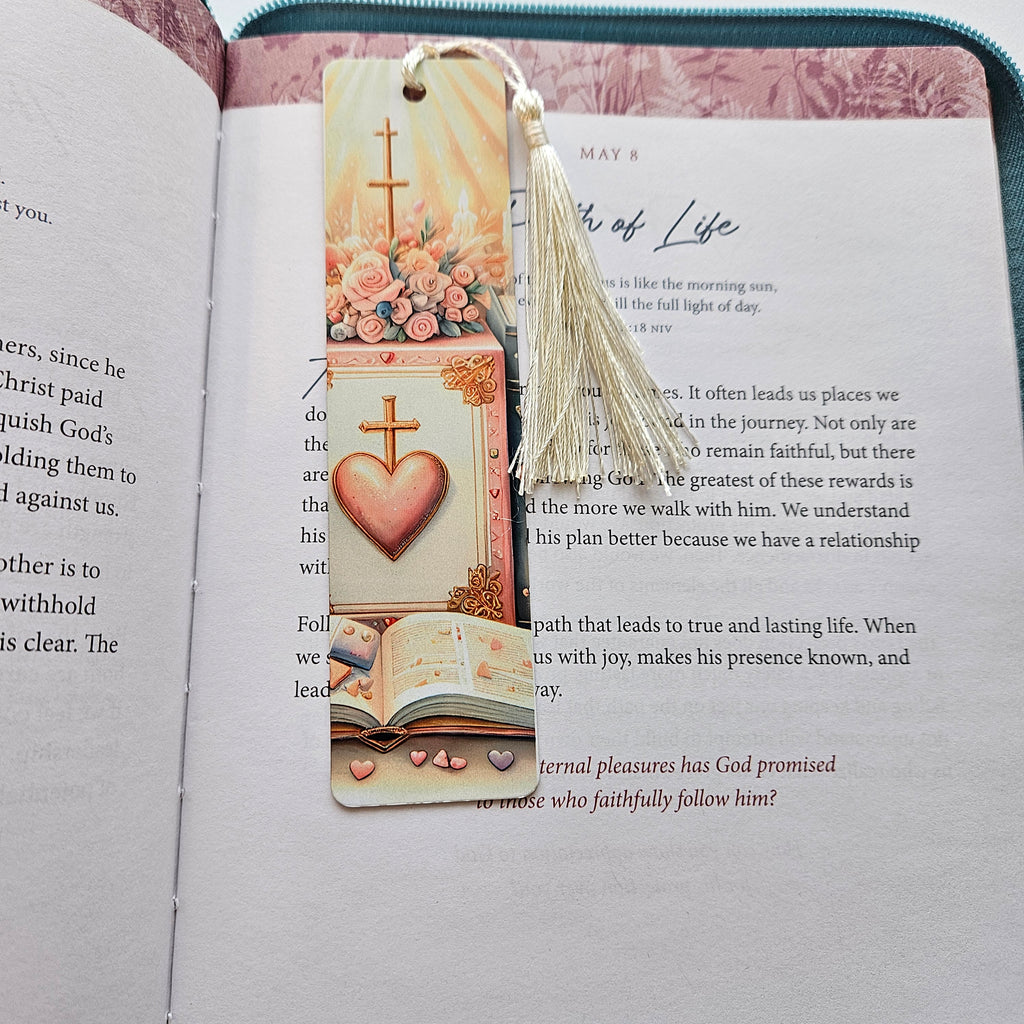 st you.
ers, since he
Christ paid
quish God's
olding them to
d against us.
other is to
withhold
is clear. The
MAY 8
of Life
is like the morning sun,
ill the full light of day.
:18 NIV
It often leads us places we
do in the journey. Not only are
the remain faithful, but there
are The greatest of these rewards is
tha d the more we walk with him. We understand
his his plan better because we have a relationship
wit
Foll path that leads to true and lasting life. When
we us with joy, makes his presence known, and
lead way.
ternal pleasures has God promised
to those who faithfully follow him?